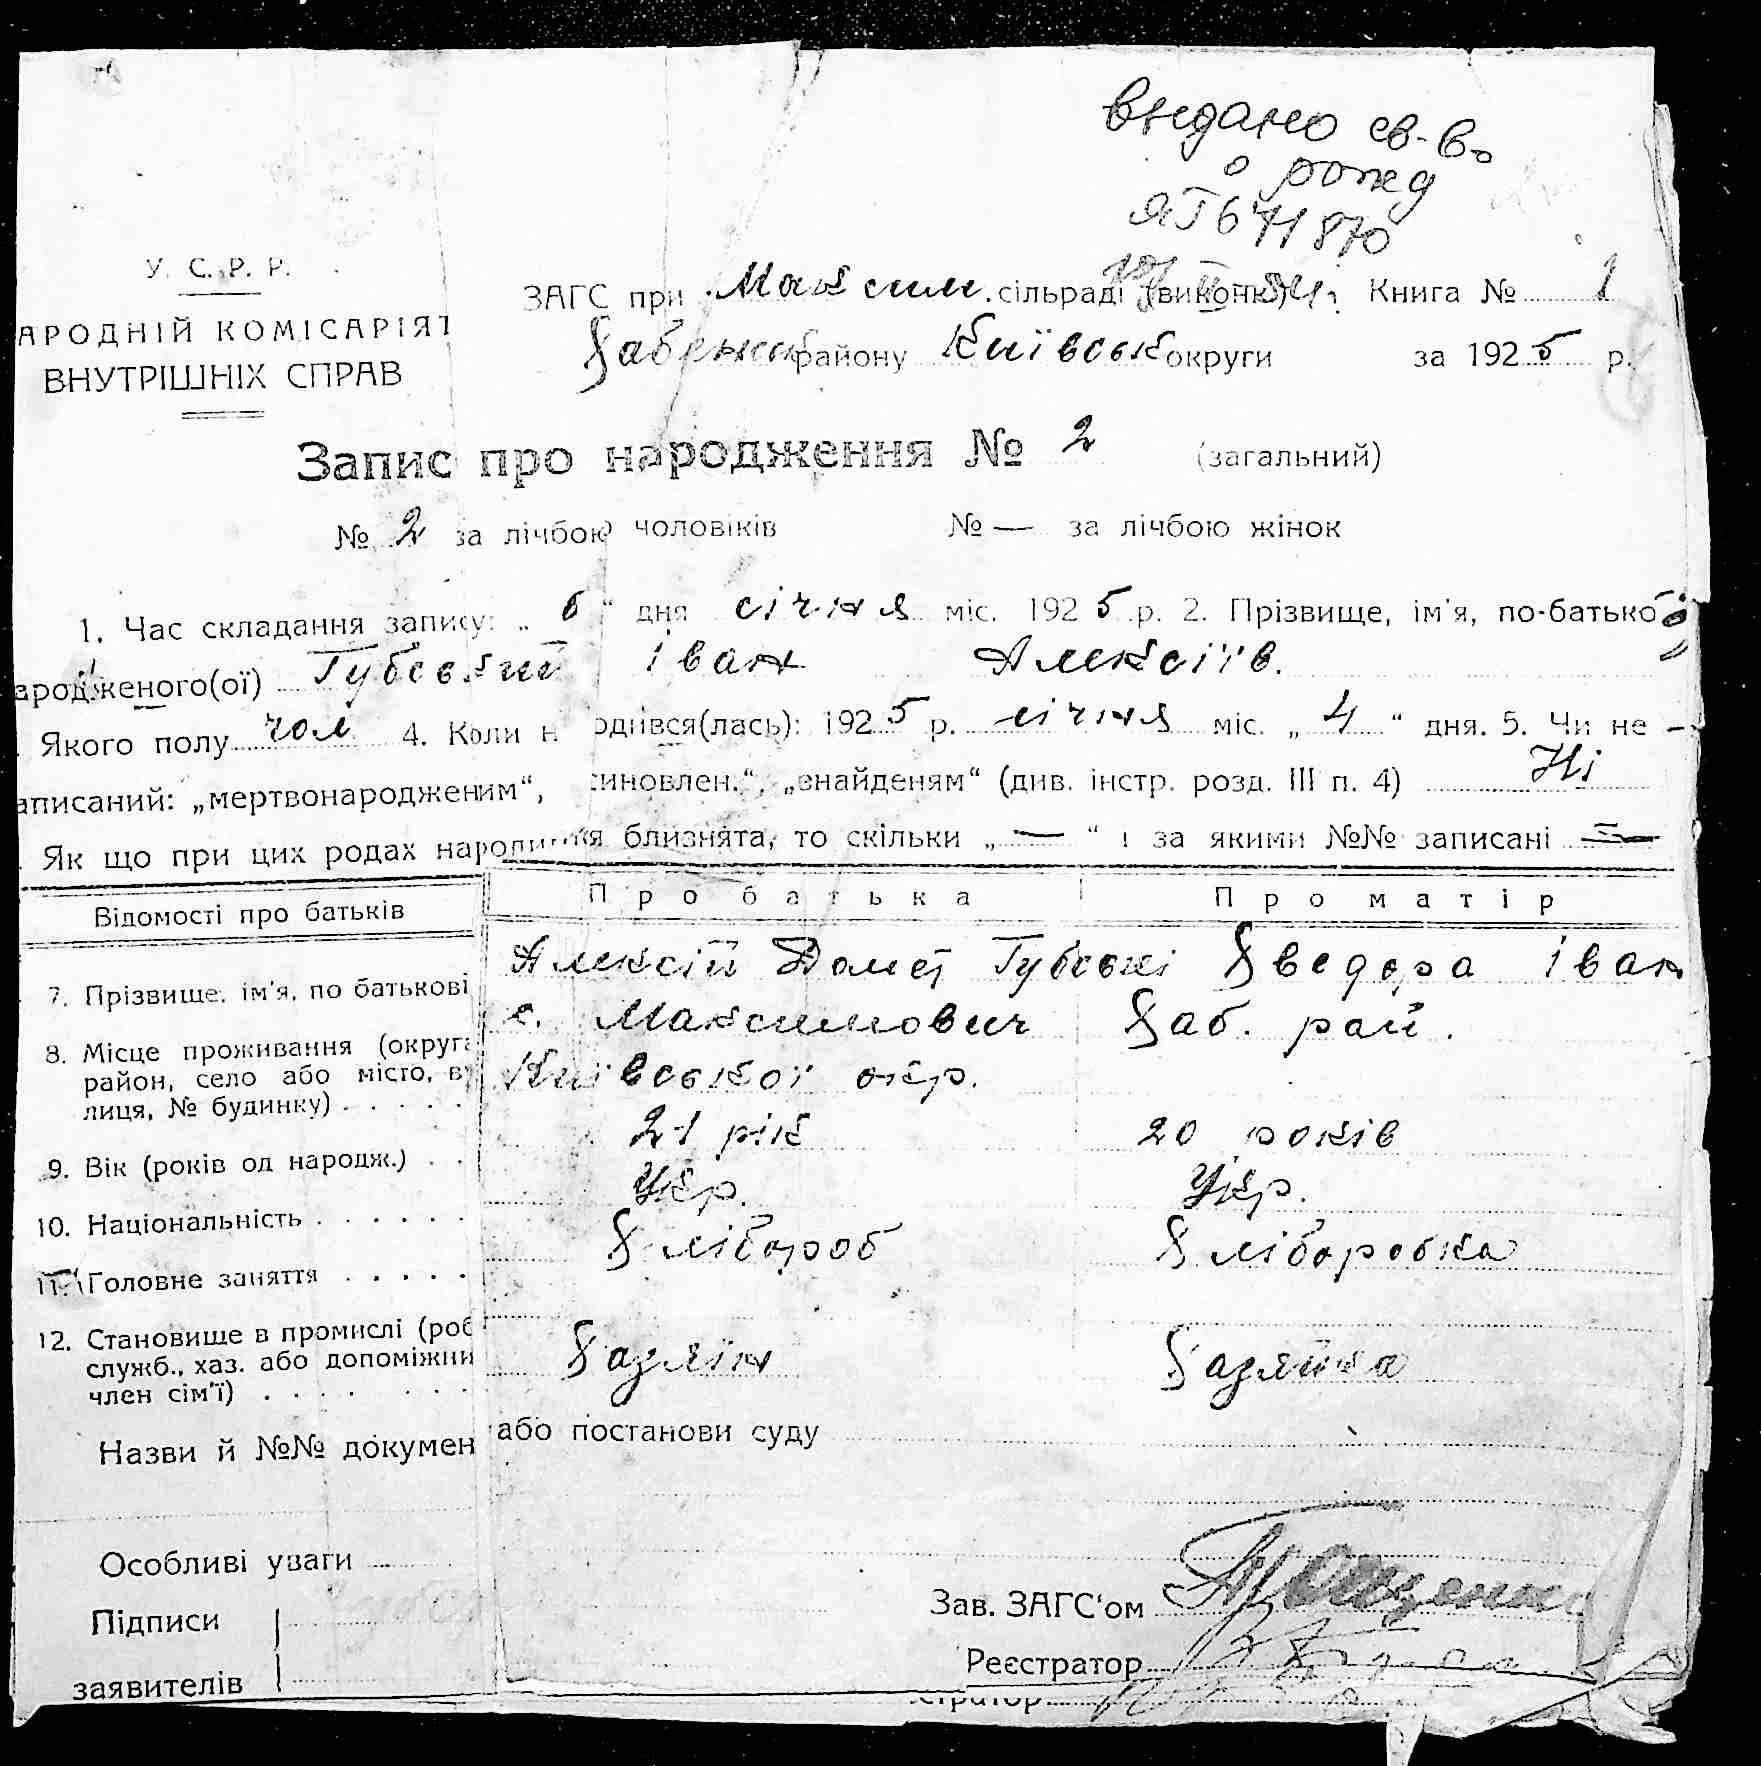 видано св-во
о рожд
ЯТ 671870
У. С. Р. Р.
АРОДНІЙ КОМІСАРІЯТ
ВНУТРІШНІХ СПРАВ
ЗАГС при Максим. сільраді (виконк) Книга № 1
Хабенськ району Київськ округи за 1925 р.
Запис про народження № 2 (загальний)
№ 2 за лічбою чоловіків № — за лічбою жінок
1. Час складання запису: „ 6 “ дня січня міс. 1925 р. 2. Прізвище, ім'я, по-батькові
ародженого(ої) Губський Іван Алексіїв.
Якого полу чол 4. Коли н одився(лась): 1925 р. січня міс. „ 4 “ дня. 5. Чи не
аписаний: „мертвонародженим“, синовлен.“, „знайденям“ (див. інстр. розд. III п. 4) Ні
Як що при цих родах народи ня близнята, то скільки „ — “ і за якими №№ записані —
Відомості про батьків Про батька Про матір
7. Прізвище, ім'я, по батькові Алексій Губські Хведора Іван
8. Місце проживання (округа район, село або місто, ву с. Максимович Хаб. рай.
лиця, № будинку) Київської окр.
9. Вік (років од народж.) 21 рік 20 років
10. Національність Укр. Укр.
11. Головне заняття Хлібороб Хліборобка
12. Становище в промислі (роб
служб., хаз. або допоміжни Хазяїн Хазяйка
член сім'ї)
Назви й №№ докумен або постанови суду
Особливі уваги
Підписи Зав. ЗАГС'ом
заявителів Реєстратор
стратор